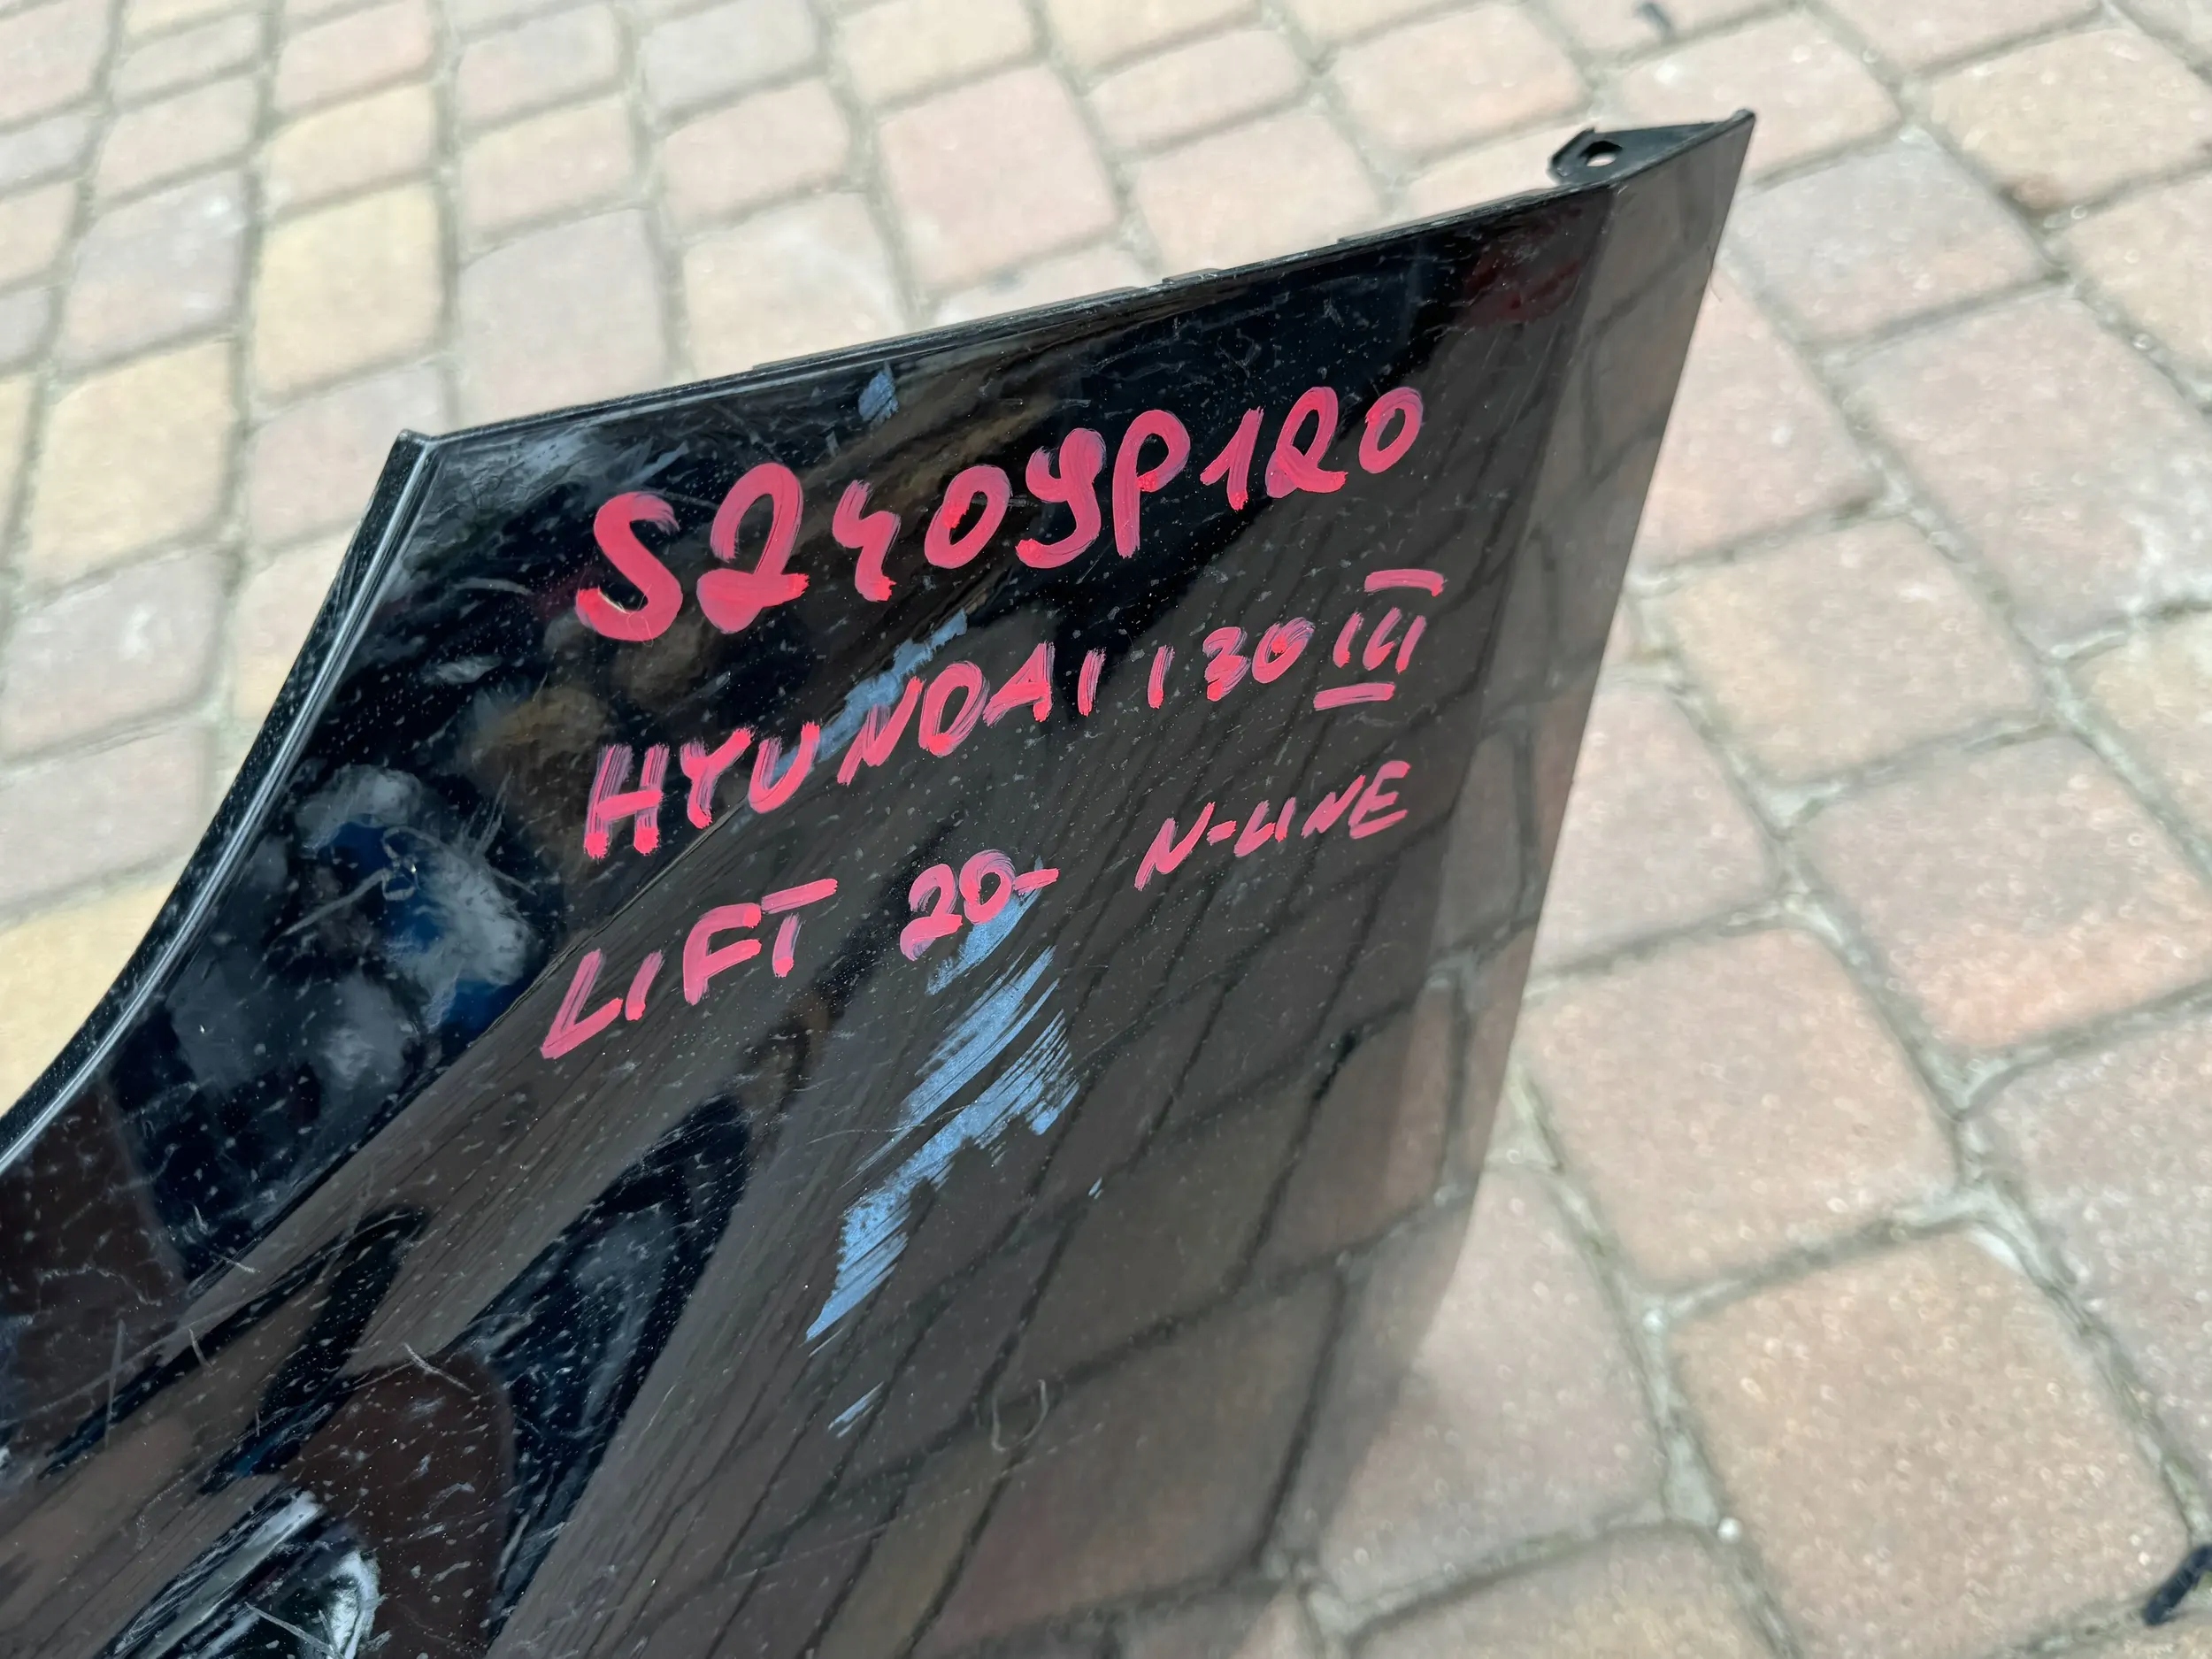 S2409P120
HYUNDAI I30 III
LIFT 20- N-LINE